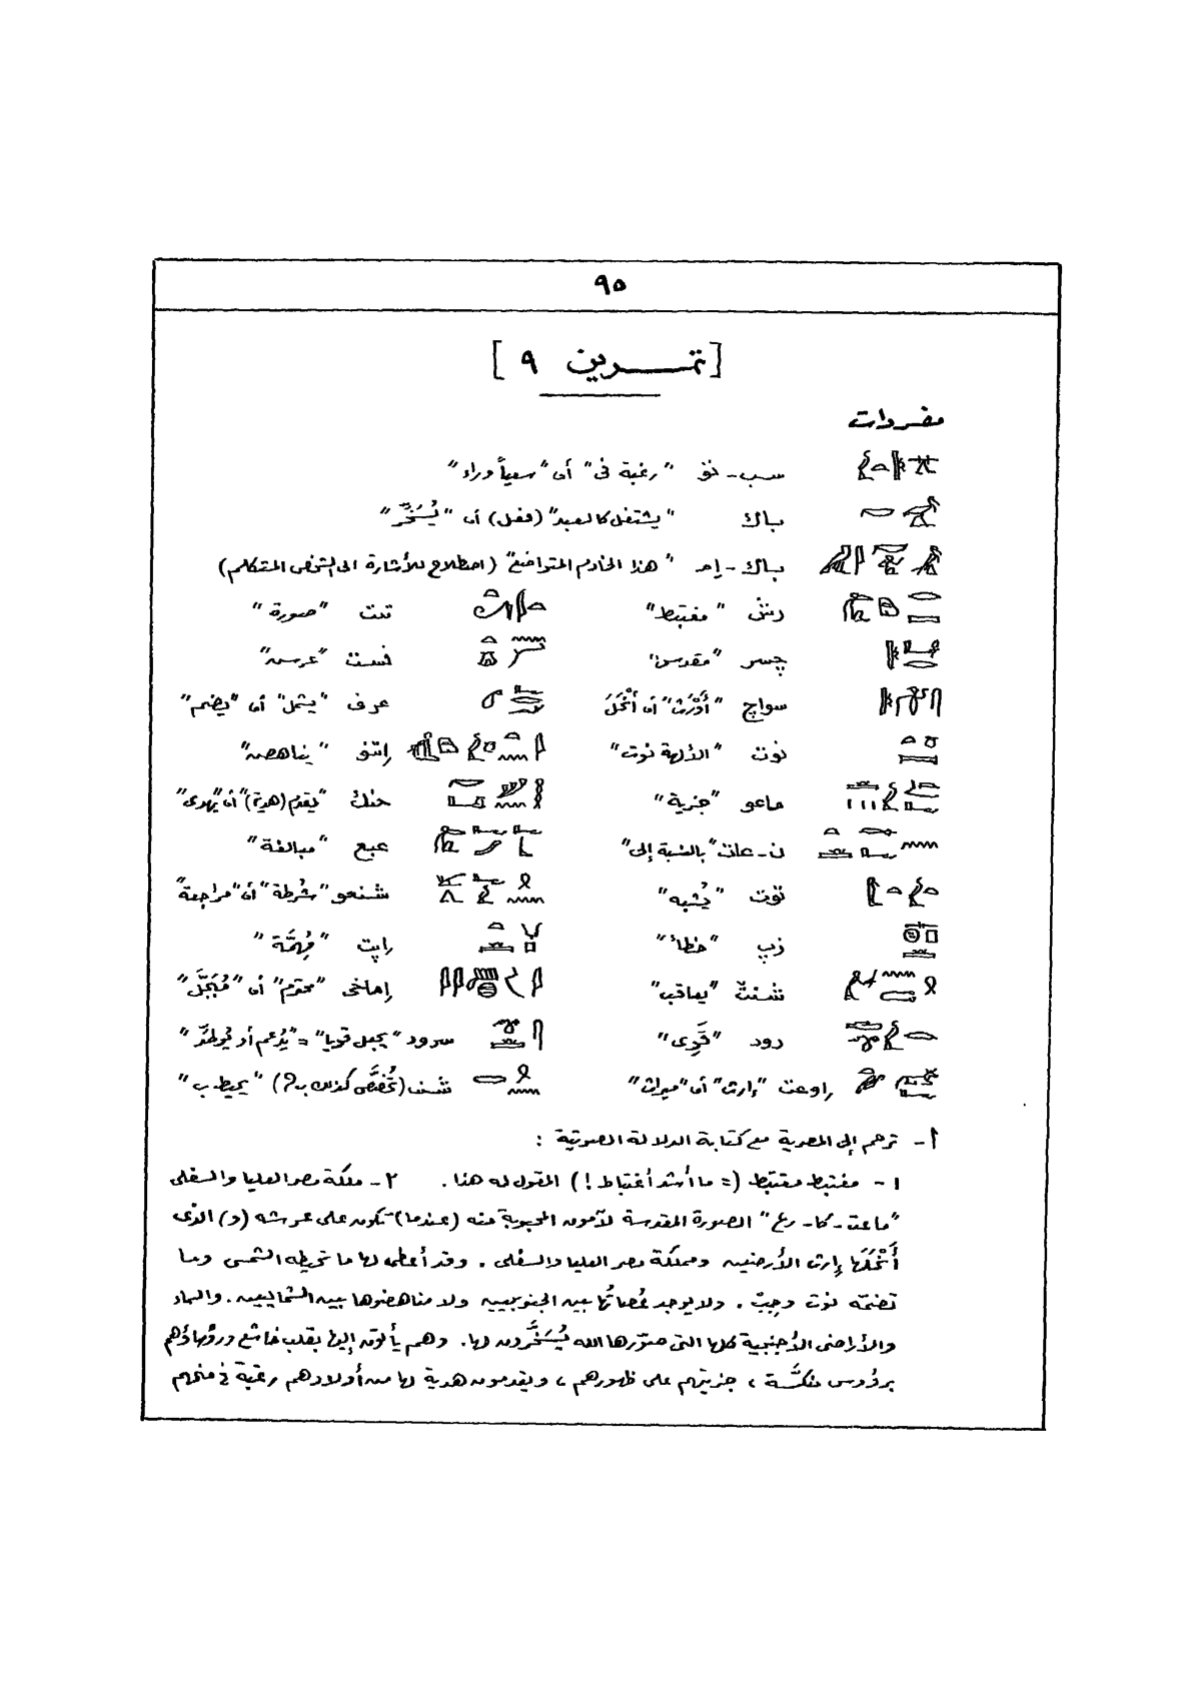 ٩٥
[تمـرين ٩]
مفردات
سب - نق "رغبة فى" أى "سعياً وراء"
باك "يشتغل كالعبد" (فعل) أى "يُسَخَّر"
باك - إم "هذا الخادم المتواضع" (اصطلاح للأشارة الى الشخص المتكلم)
رش "مغتبط" تت "صورة"
چسر "مقدس" نست "عرش"
سواچ "أَوْرَث" أى أَنْحَلَ عرف "يشمل" أى "يضم"
نوت "الألهة نوت" إتنو "يناهض"
ماعو "جزية" حنك "يقدم (هدية)" أى "يهدى"
ن - عات "بالنسبة إلى" عبع "مبالغة"
توت "يُشبه" شنعو "شرطة" أى "مراجعة"
زپ "خطأ" إپت "مُهِمَّة"
شنت "يعاقب" إماخى "محترم" أى "مُبَجَّل"
رود "قَوِى" سرود "يجعل قويا" = "يُدعم أو يُوطد"
إوعت "إرث" أى "ميراث" شنى (تُخصَّص كذلك ب) "يحيط ب"
أ - ترجم إلى المصرية مع كتابة الدلالة الصوتية :
١ - مغتبط مغتبط (= ما أشد أغتباط !) المقول له هذا. ٢ - ملكة مصر العليا والسفلى
"ماعت - كا - رع" الصورة المقدسة لآمون المحبوبة منه (عندما) تكون على عرشه (و) الذى
أَنْحَلَها إرث الأرضين ومملكة مصر العليا والسفلى . وقد أعطى لها ما تحيطه الشمس وما
تضمه نوت وجبْ . ولا يوجد عُصاتُها بين الجنوبيين ولا مناهضوها بين الشماليين . والسماء
والأراضى الأجنبية كلها التى صوّرها الله يُسَخَّرون لها. وهم يأتون إليها بقلب خاشع ورؤساؤهم
برؤوس منكَّسة ، جزيتهم على ظهورهم ، ويقدمون هدية لها من أولادهم رغبة فى منحهم